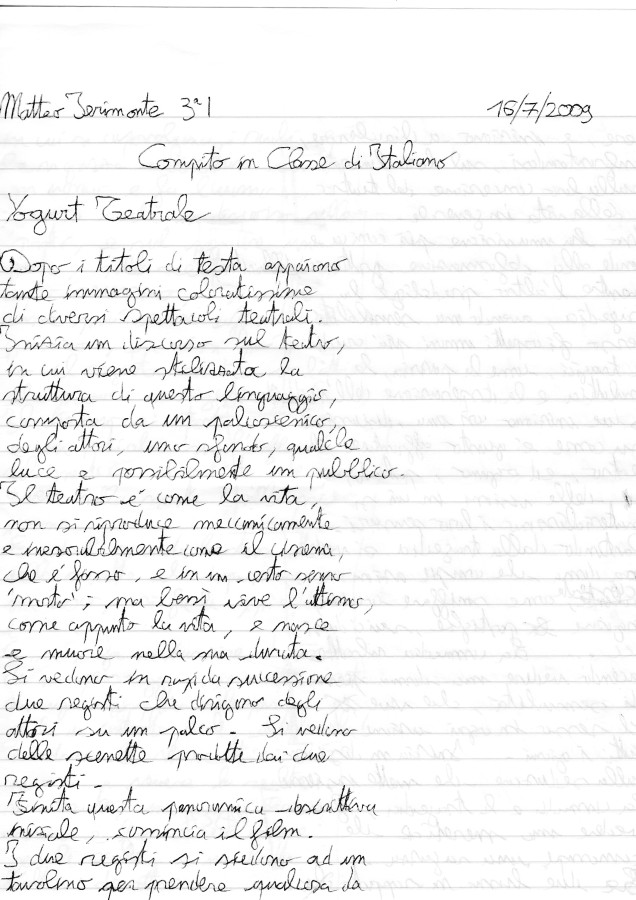 Matteo Terimonte 3ª I 16/7/2009
Compito in Classe di Italiano
Yogurt Teatrale
Dopo i titoli di testa appaiono
tante immagini coloratissime
di diversi spettacoli teatrali.
Inizia un discorso sul teatro,
in cui viene stilizzata la
struttura di questo linguaggio,
composta da un palcoscenico,
degli attori, uno sfondo, qualche
luce e possibilmente un pubblico.
Il teatro é come la vita,
non si riproduce meccanicamente
e inesorabilmente come il cinema,
che é fisso, e in un certo senso
'morto'; ma bensì vive l'attimo,
come appunto la vita, e nasce
e muore nella sua durata.
Si vedono in rapida successione
due registi che dirigono degli
attori su un palco. Si vedono
delle scenette prodotte dai due
registi.
Finita questa panoramica descrittiva
iniziale, comincia il film.
I due registi si siedono ad un
tavolino per prendere qualcosa da